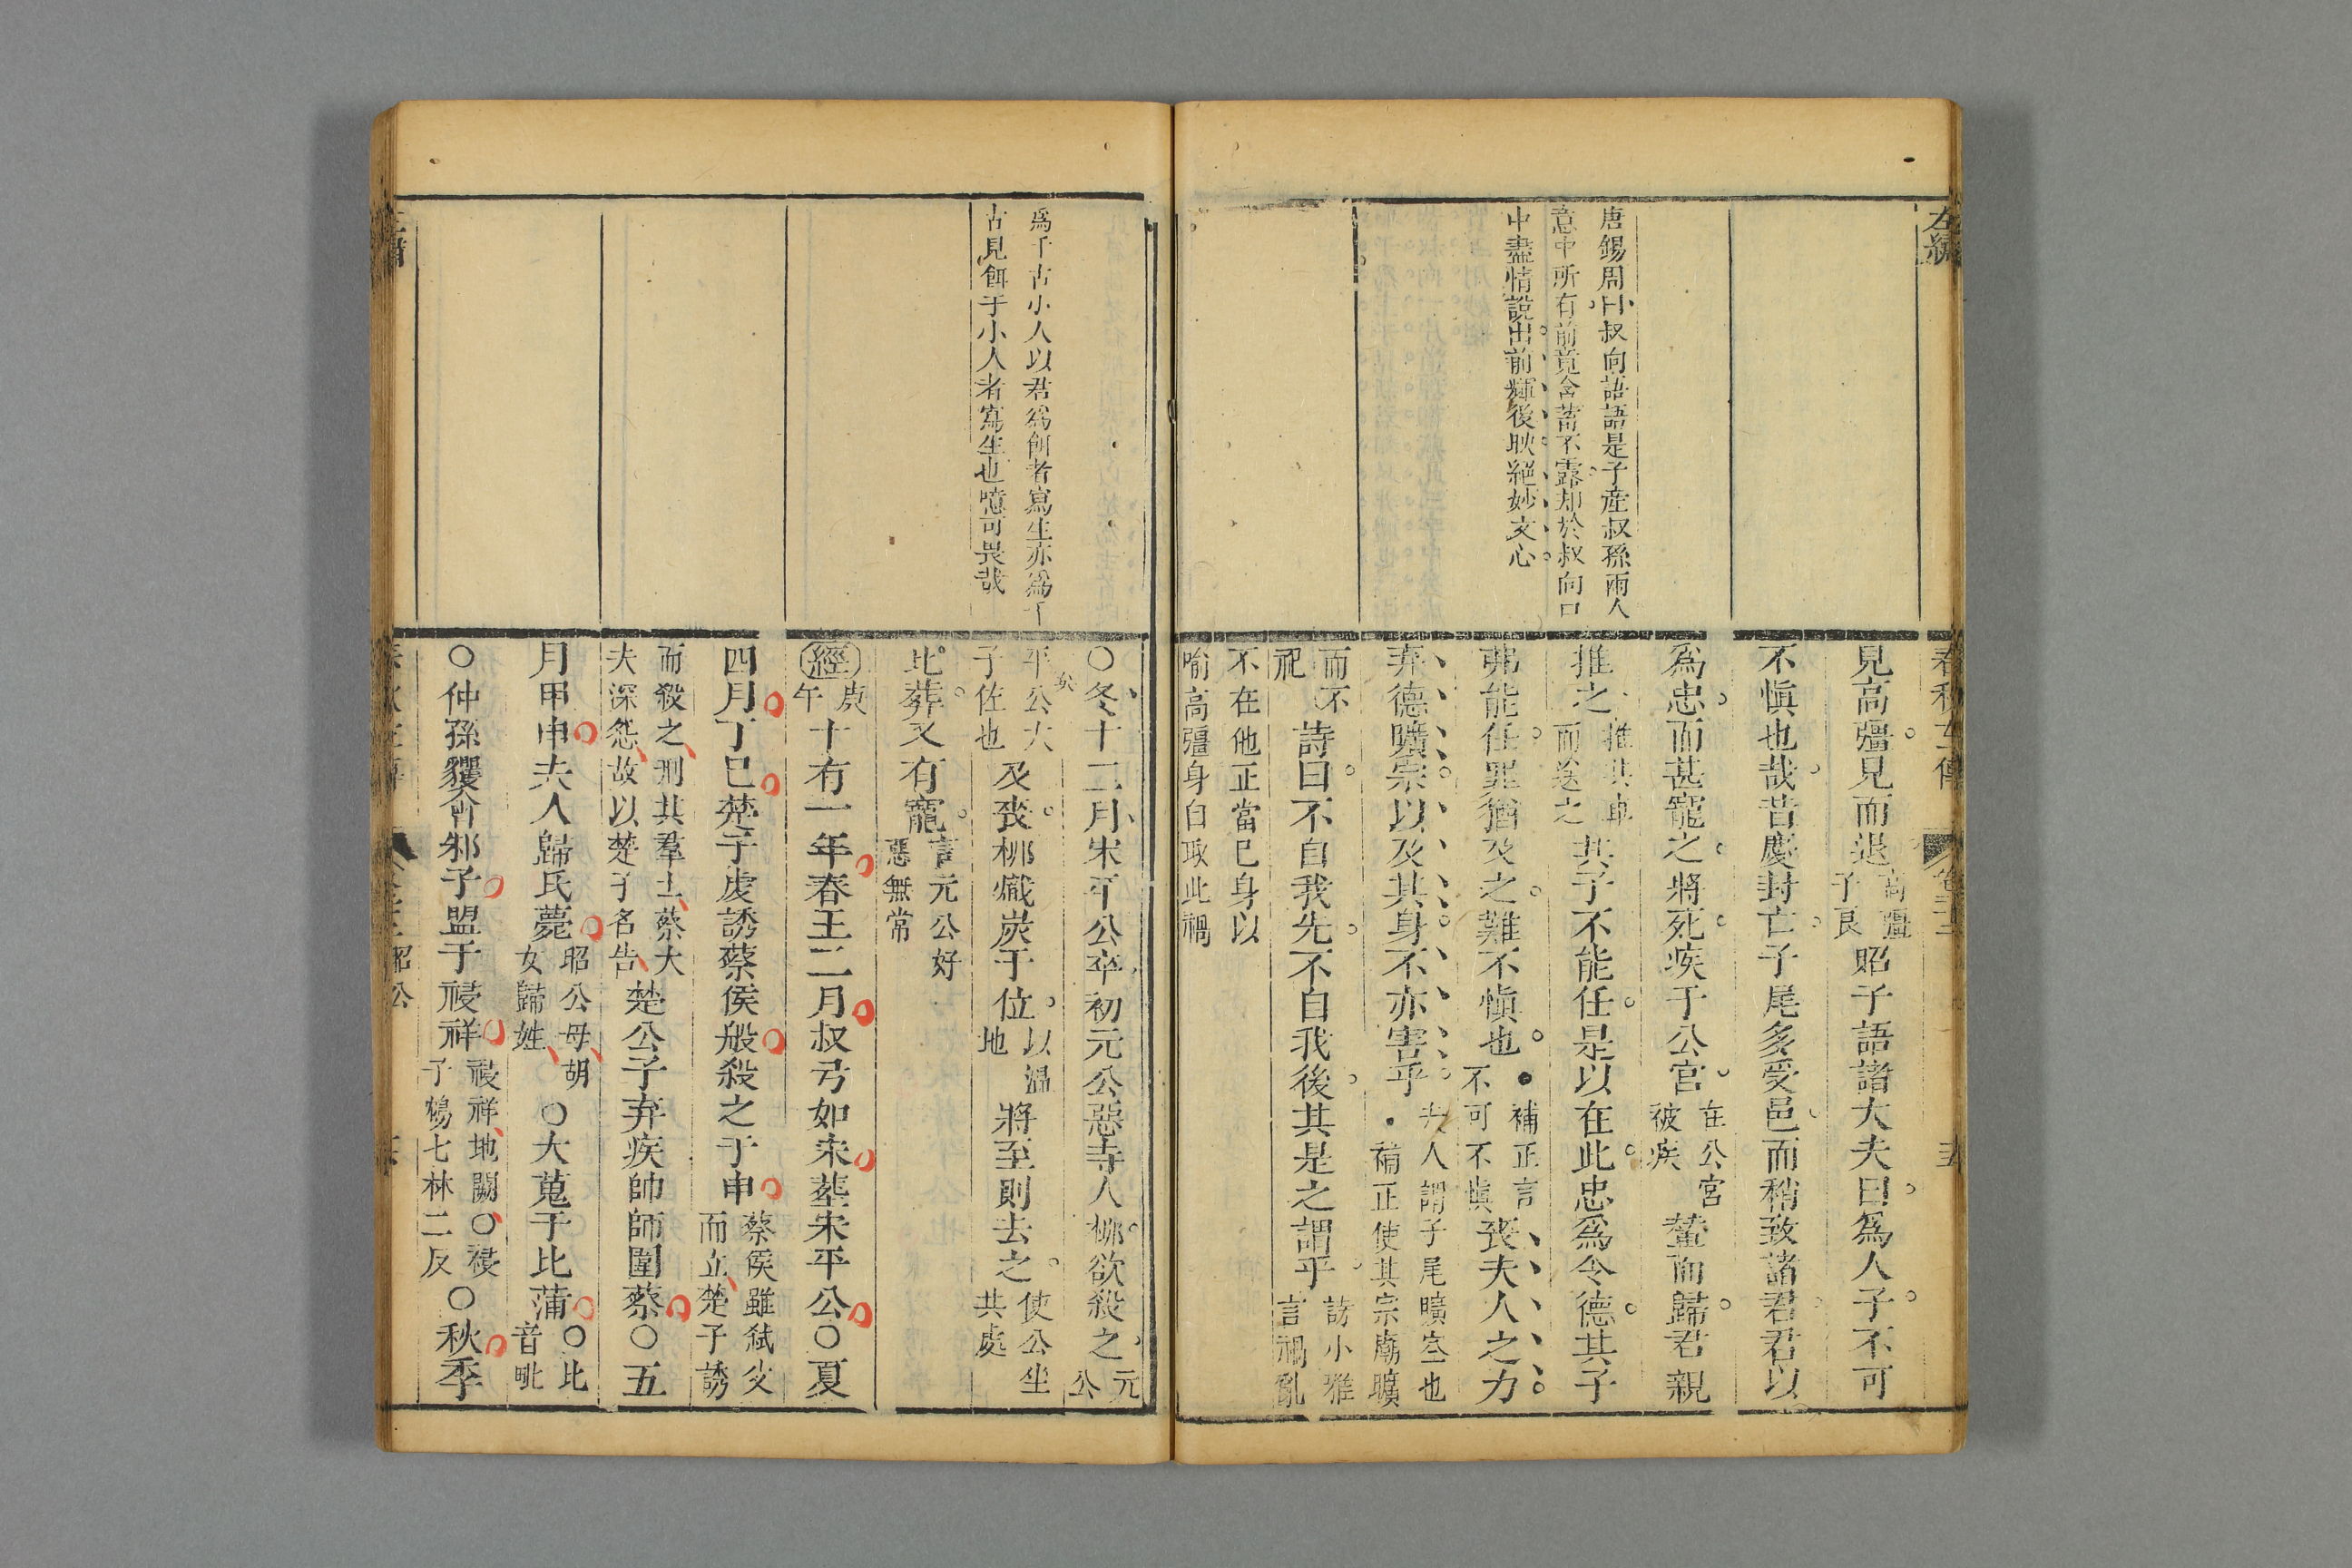 左繡
唐錫周曰叔向語語是子產叔孫兩人
意中所有前竟含蓄不露却於叔向口
中盡情說出前輝後映絕妙文心
春秋左傳
見高彊見而退高彊子良昭子語諸大夫曰爲人子不可
不愼也哉昔慶封亡子尾多受邑而稍致諸君君以
爲忠而甚寵之將死疾于公宮在公宮被疾輦而歸君親
推之推其車而送之其子不能任是以在此忠爲令德其子
弗能任罪猶及之難不愼也●補正言不可不愼喪夫人之力
弃德曠宗以及其身不亦害乎夫人謂子尾曠空也・補正使其宗廟曠
而不祀詩曰不自我先不自我後其是之謂乎詩小雅言禍亂
不在他正當已身以喻高彊身自取此禍
爲千古小人以君爲餌者寫生亦爲千
古見餌于小人者寫生也噫可畏哉
○冬十二月宋平公卒初元公惡寺人栁欲殺之元公
平公大子佐也及喪栁熾炭于位以溫地將至則去之使公坐共處
比葬又有寵言元公好惡無常
經庚午十有一年春王二月叔弓如宋葬宋平公○夏
四月丁巳楚子虔誘蔡侯般殺之于申蔡侯雖弑父而立楚子誘
而殺之刑其羣士蔡大夫深怨故以楚子名告楚公子弃疾帥師圍蔡○五
月甲申夫人歸氏薨昭公母胡女歸姓○大蒐于比蒲○比音毗
○仲孫貜會邾子盟于祲祥祲祥地闕○祲子鴆七林二反○秋季
昭公